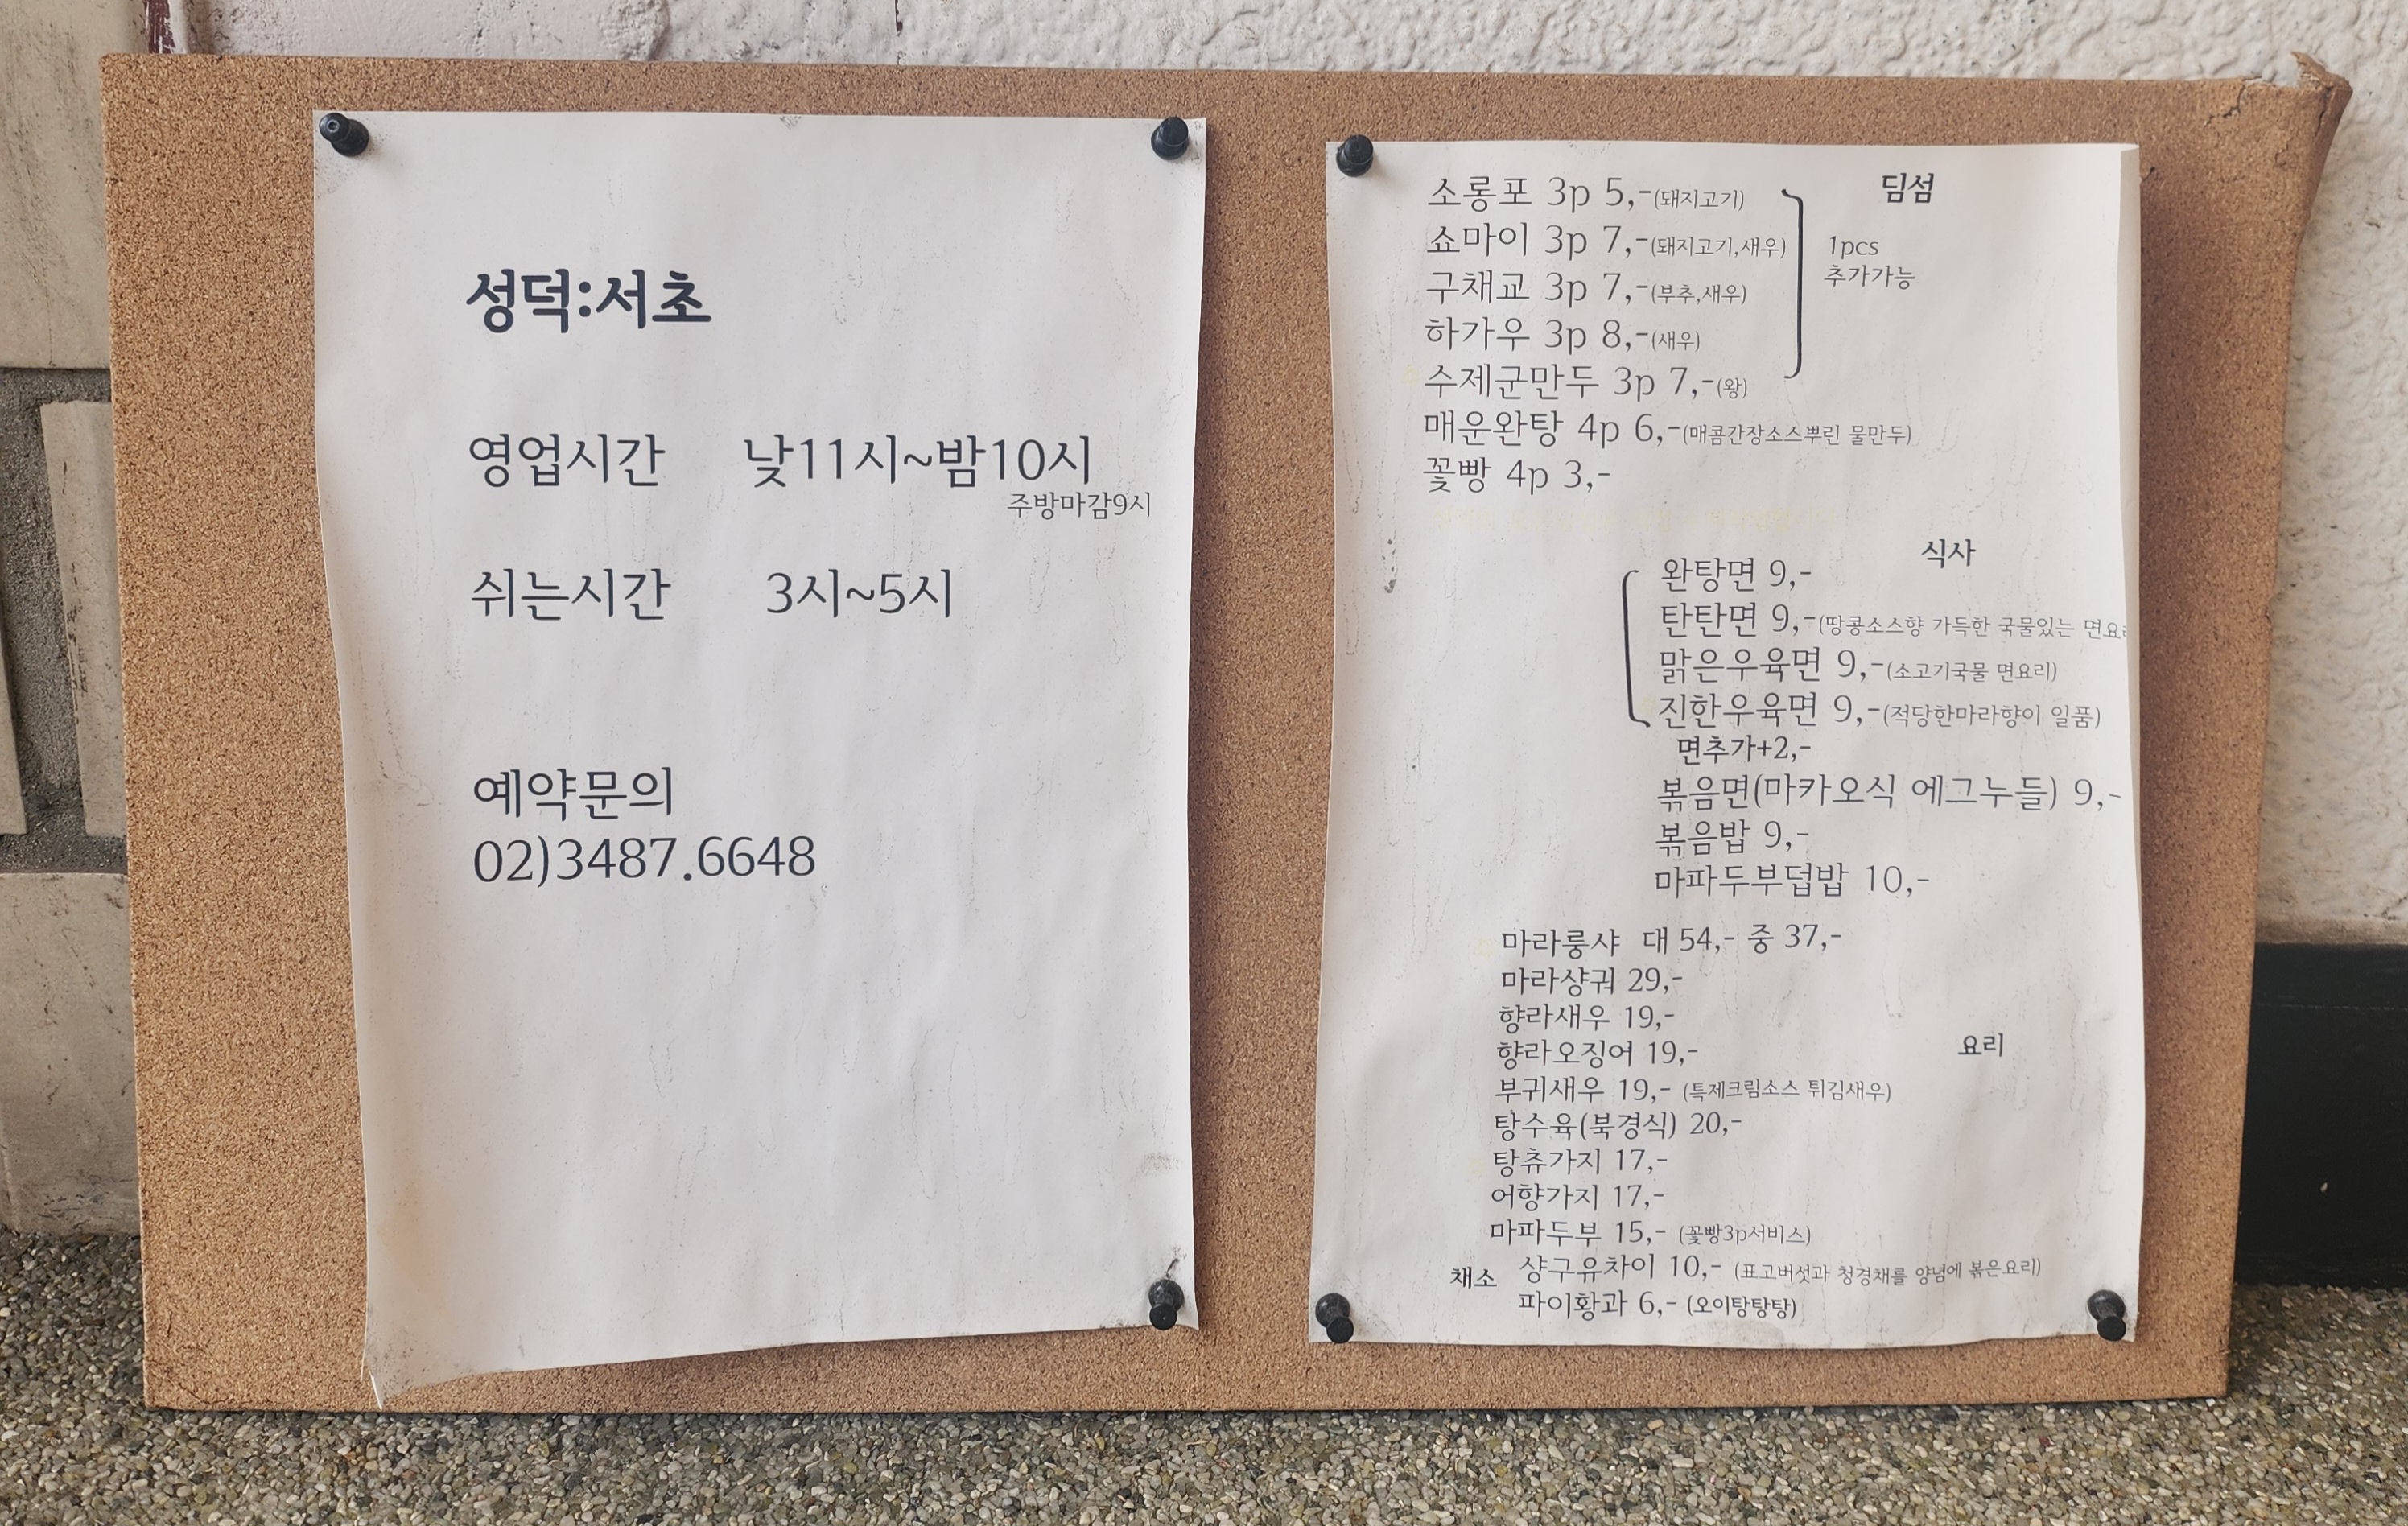 성덕:서초
영업시간 낮11시~밤10시
주방마감9시
쉬는시간 3시~5시
예약문의
02)3487.6648
딤섬
소롱포 3p 5,-(돼지고기)
쇼마이 3p 7,-(돼지고기,새우)
구채교 3p 7,-(부추,새우)
하가우 3p 8,-(새우)
수제군만두 3p 7,-(왕)
1pcs
추가가능
매운완탕 4p 6,-(매콤간장소스뿌린 물만두)
꽃빵 4p 3,-
식사
완탕면 9,-
탄탄면 9,-(땅콩소스향 가득한 국물있는 면요리
맑은우육면 9,-(소고기국물 면요리)
진한우육면 9,-(적당한마라향이 일품)
면추가+2,-
볶음면(마카오식 에그누들) 9,-
볶음밥 9,-
마파두부덥밥 10,-
마라룽샤 대 54,- 중 37,-
마라샹궈 29,-
향라새우 19,-
향라오징어 19,-
요리
부귀새우 19,- (특제크림소스 튀김새우)
탕수육(북경식) 20,-
탕츄가지 17,-
어향가지 17,-
마파두부 15,- (꽃빵3p서비스)
채소 샹구유차이 10,- (표고버섯과 청경채를 양념에 볶은요리)
파이황과 6,- (오이탕탕탕)